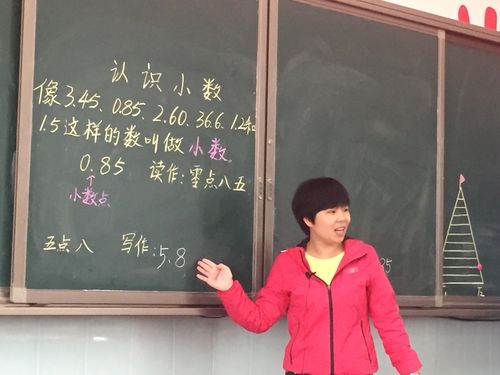 认识小数
像3.45、0.85、2.60、36.6、1.2和
1.5这样的数叫做小数。
0.85 读作:零点八五
小数点
五点八 写作:5.8